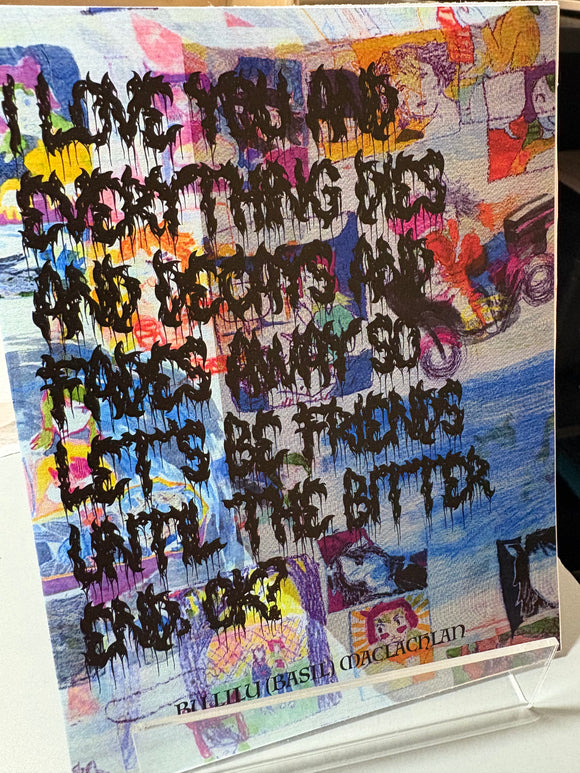 I LOVE YOU AND
EVERYTHING DIES
AND DECAYS AND
FADES AWAY SO
LET'S BE FRIENDS
UNTIL THE BITTER
END OK?
BY LILY (BASIL) MACLACHLAN